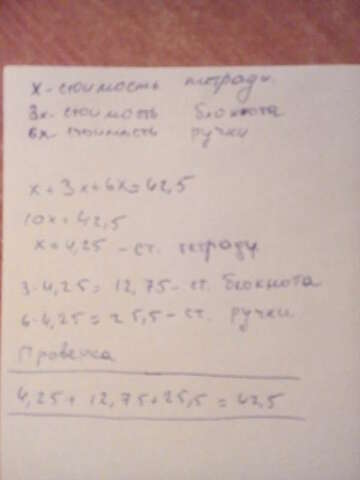 x - стоимость тетради.
3x - стоимость блокнота
6x - стоимость ручки
x + 3x + 6x = 42,5
10x = 42,5
x = 4,25 - ст. тетради
3·4,25 = 12,75 - ст. блокнота
6·4,25 = 25,5 - ст. ручки
Проверка
4,25 + 12,75 + 25,5 = 42,5